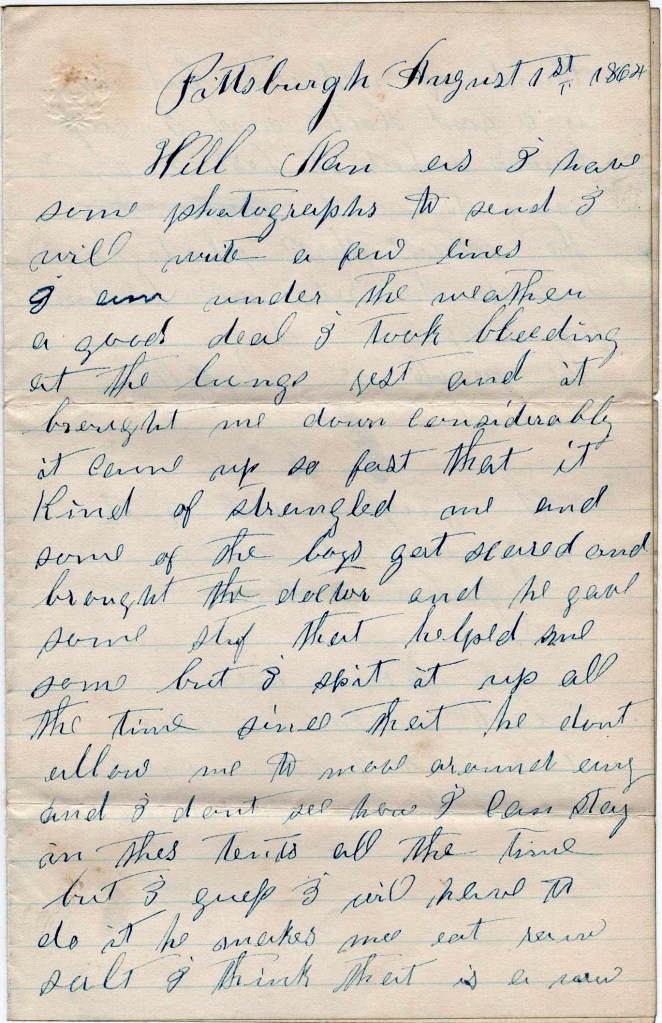 Pittsburgh August 1st 1864
Will Nan as I have
some photographs to send I
will write a few lines
I am under the weather
a good deal I took bleeding
at the lungs yest and it
brought me down considerably
it came up so fast that it
Kind of strangled me and
some of the boys got scared and
brought the doctor and he gave
some stuf that helped me
some but I spit it up all
the time since that he dont
allow me to move around any
and I dont see how I can stay
in thes tents all the time
but I guess I will have to
do it he makes me eat raw
salt I think that is a raw